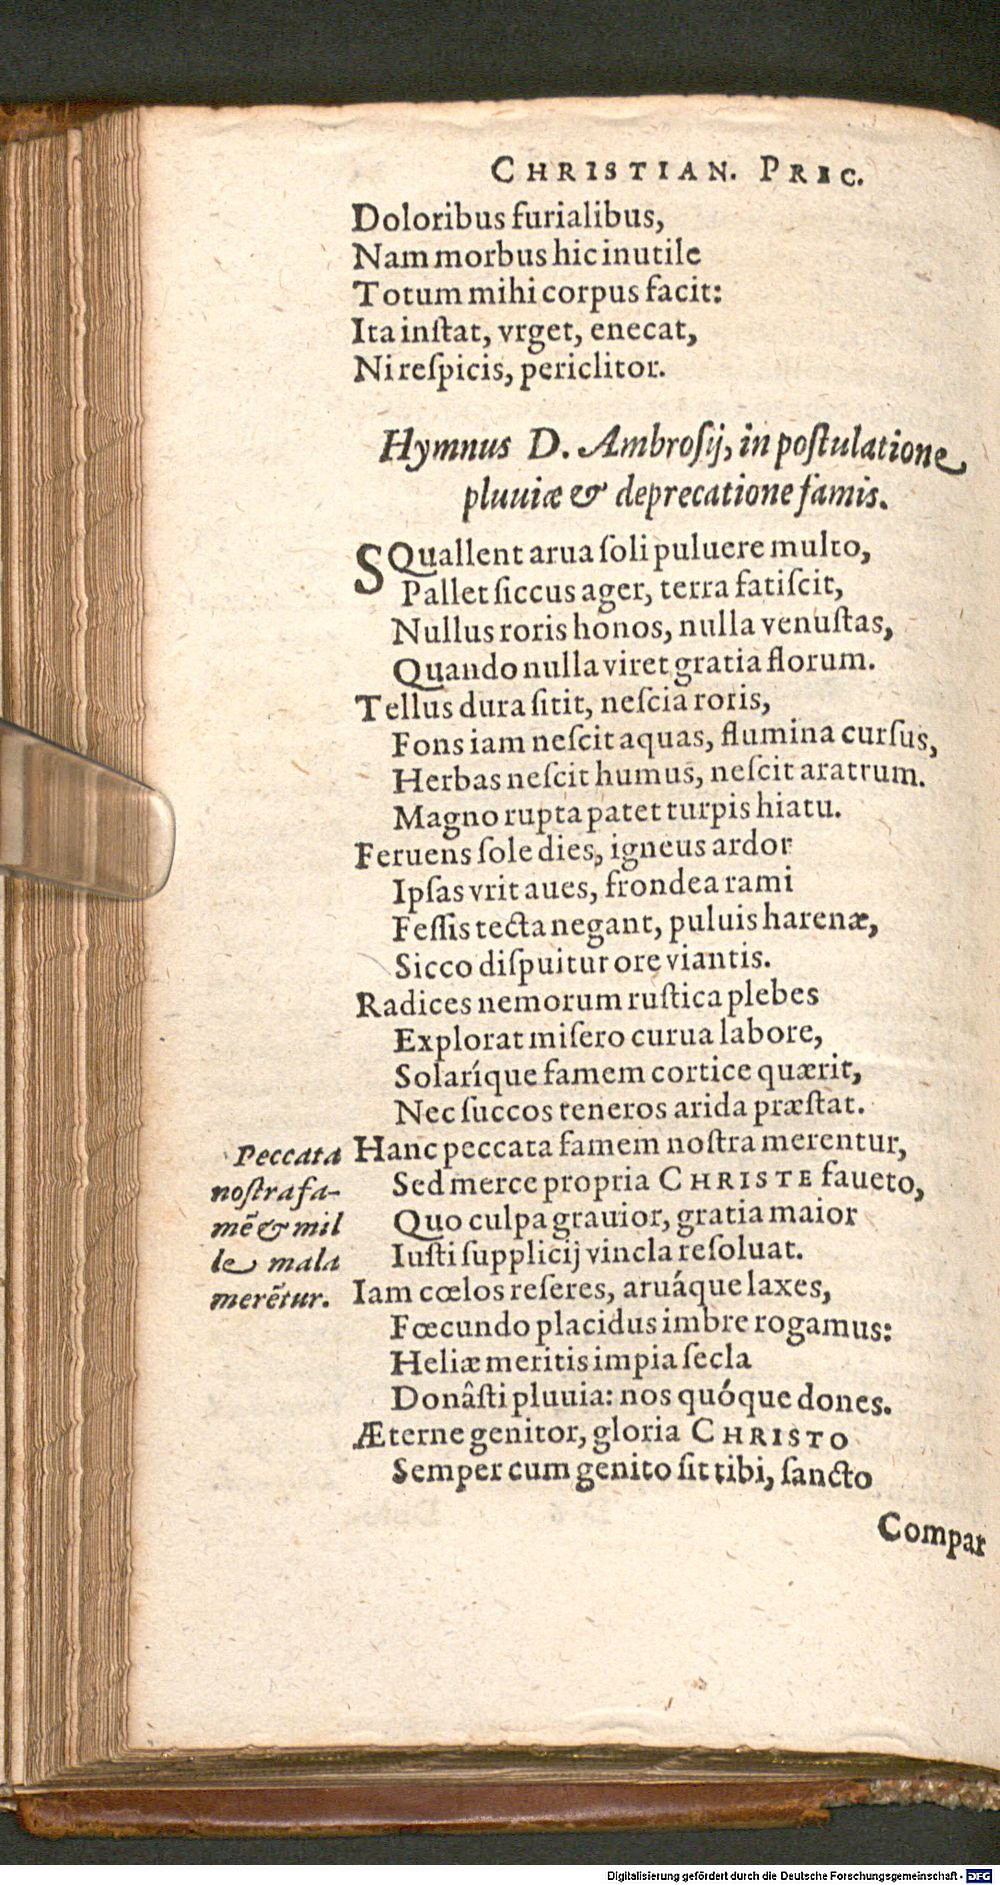 CHRISTIAN. PREC.
Doloribus furialibus,
Nam morbus hic inutile
Totum mihi corpus facit:
Ita inſtat, vrget, enecat,
Ni reſpicis, periclitor.
Hymnus D. Ambroſij, in poſtulatione
pluuiæ & deprecatione famis.
SQuallent arua ſoli puluere multo,
Pallet ſiccus ager, terra fatiſcit,
Nullus roris honos, nulla venuſtas,
Quando nulla viret gratia florum.
Tellus dura ſitit, neſcia roris,
Fons iam neſcit aquas, flumina curſus,
Herbas neſcit humus, neſcit aratrum.
Magno rupta patet turpis hiatu.
Feruens ſole dies, igneus ardor
Ipſas vrit aues, frondea rami
Feſſis tecta negant, puluis harenæ,
Sicco diſpuitur ore viantis.
Radices nemorum ruſtica plebes
Explorat miſero curua labore,
Solaríque famem cortice quærit,
Nec ſuccos teneros arida præſtat.
Hanc peccata famem noſtra merentur,
Sed merce propria CHRISTE faueto,
Quo culpa grauior, gratia maior
Iuſti ſupplicij vincla reſoluat.
Peccata
noſtra fa-
mẽ & mil
le mala
merẽtur.
Iam cœlos reſeres, aruáque laxes,
Fœcundo placidus imbre rogamus:
Heliæ meritis impia ſecla
Donâſti pluuia: nos quóque dones.
Æterne genitor, gloria CHRISTO
Semper cum genito ſit tibi, ſancto
Compar
Digitalisierung gefördert durch die Deutsche Forschungsgemeinschaft - DFG